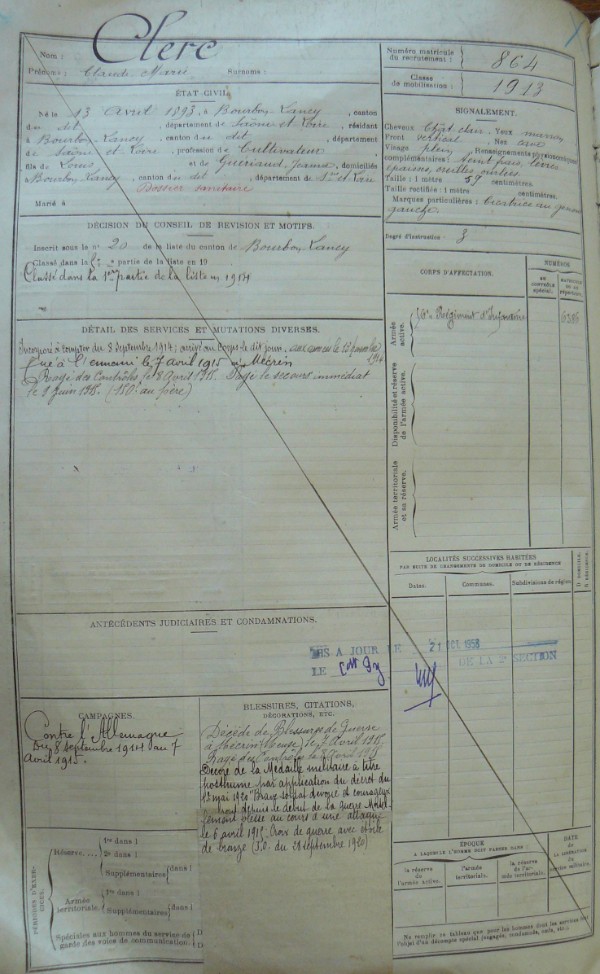 Nom : Clerc
Prénoms : Claude Marie Surnoms :
Numéro matricule du recrutement : 864
Classe de mobilisation : 1913
ÉTAT CIVIL
Né le 13 Avril 1893, à Bourbon Lancy, canton
dudit, département de Saône et Loire, résidant
à Bourbon Lancy, canton du dit, département
de Saône et Loire, profession de Cultivateur
fils de Louis et de Guériaud, Jeanne, domiciliés
à Bourbon Lancy, canton du dit, département de
Dossier sanitaire
Marié à
DÉCISION DU CONSEIL DE REVISION ET MOTIFS.
Inscrit sous le n° 20 de la liste du canton de Bourbon Lancy
Classé dans la partie de la liste en 19
Classé dans la 1ère partie de la liste en 1914
DÉTAIL DES SERVICES ET MUTATIONS DIVERSES.
Incorporé à compter du 8 Septembre 1914; arrivé au Corps le dit jour.
Tué à l'ennemi le 7 avril 1915 Mécrin
Rayé des Contrôles le 8 Avril 1915. Payé le secours immédiat
le 8 Juin 1915. (150f au père)
ANTÉCÉDENTS JUDICIAIRES ET CONDAMNATIONS.
MIS A JOUR LE 21 OCT. 1958
LE DE LA 2e SECTION
CAMPAGNES.
Contre l'Allemagne
Du 8 septembre 1914 au 7
Avril 1915.
BLESSURES, CITATIONS,
DÉCORATIONS, ETC.
Décédé de Blessures de Guerre
à Mécrin (Meuse) le 7 Avril 1915
Rayé des Contrôles le 8 Avril 1915
Décoré de la Médaille militaire à titre
posthume par application du décret du
mai 1920 "Brave soldat dévoué et courageux
depuis le début de la guerre Mortel-
lement blessé au cours d'une attaque
le 6 avril 1915. Croix de guerre avec étoile
de bronze (J.O. du septembre 1920)
PÉRIODES D'EXERCICES.
Réserve....
1re dans l
2e dans l
Supplémentaires dans l
Armée territoriale.
1re dans l
Supplémentaires dans l
Spéciales aux hommes du service de
garde des voies de communication.
SIGNALEMENT.
Cheveux Chât clair, Yeux marron
Front vertical, Nez
Visage plein, Renseignements physionomiques
complémentaires : teint frais, lèvres
épaisses, oreilles
Taille : 1 mètre 59 centimètres
Taille rectifiée : 1 mètre centimètres.
Marques particulières : Cicatrice au genou
gauche.
Degré d'instruction : 3
CORPS D'AFFECTATION.
NUMÉROS
AU CONTRÔLE SPÉCIAL.
MATRICULE OU AU RÉPERTOIRE.
Armée active.
Régiment d'Infanterie
Disponibilité et réserve de l'armée active.
Armée territoriale et sa réserve.
LOCALITÉS SUCCESSIVES HABITÉES
PAR SUITE DE CHANGEMENTS DE DOMICILE OU DE RÉSIDENCE
Dates.
Communes.
Subdivisions de région.
D domicile.
R résidence.
ÉPOQUE
A LAQUELLE L'HOMME DOIT PASSER DANS :
la réserve de l'armée active.
l'armée territoriale.
la réserve de l'armée territoriale.
DATE
de la
libération
du
service militaire.
Ne remplir ce tableau que pour les hommes dont les services font
l'objet d'un décompte spécial (engagés, condamnés, omis, etc.)